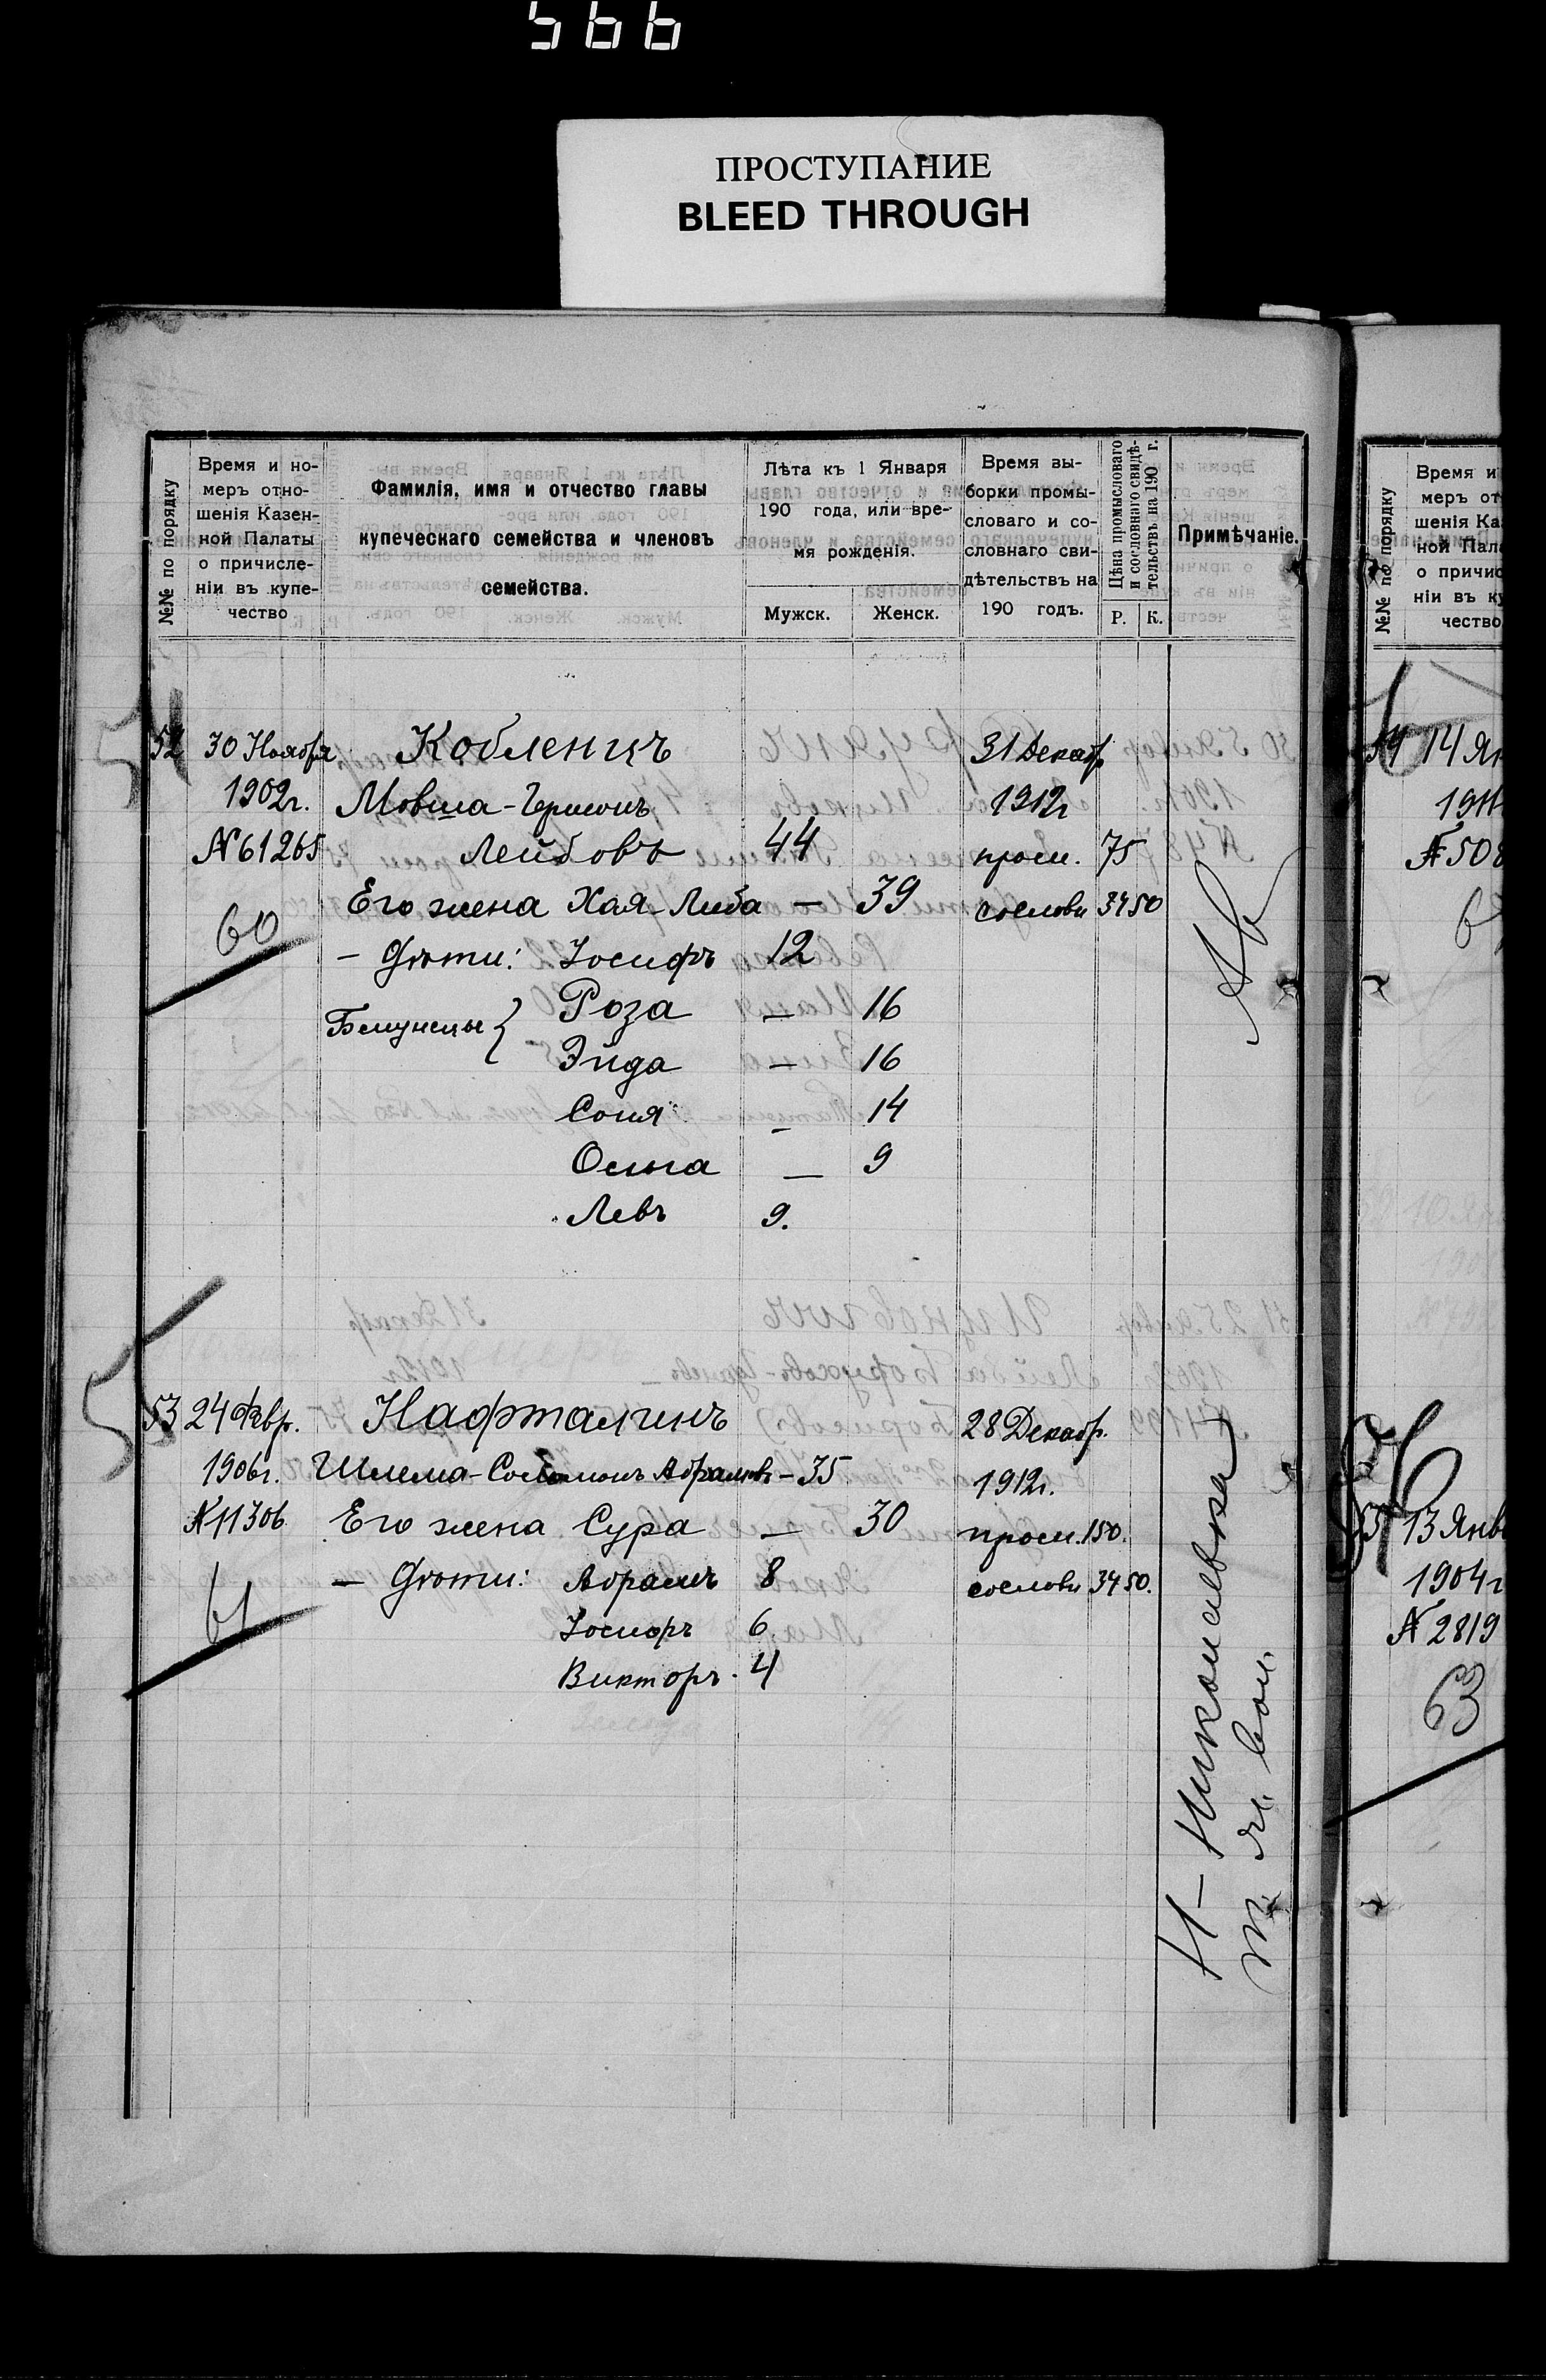 566
ПРОСТУПАНИЕ
BLEED THROUGH
№№ по порядку
Время и но-
меръ отно-
шенія Казен-
ной Палаты
о причисле-
ніи въ купе-
чество
Фамилія, имя и отчество главы
купеческаго семейства и членовъ
семейства.
Лѣта къ 1 Января
190 года, или вре-
мя рожденія.
Мужск. Женск.
Время вы-
борки промы-
словаго и со-
словнаго сви-
дѣтельствъ на
190 годъ.
Цѣна промысловаго
и сословнаго свидѣ-
тельствъ на 190 г.
Р. К.
Примѣчаніе.
52 30 Ноября Кобленцъ 31 Декабр.
1902г. Мовша-Гершонъ 1912г
№61265 Лейбовъ 44 пром. 75
60 Его жена Хая-Либа — 39 сословн 37 50
— Дѣти: Іосифъ 12
Близнецы { Роза — 16
Эйда — 16
Соня — 14
Ольга — 9
Левъ 9.
53 24 Февр. Нафталинъ 28 Декабр.
1906г. Шлема-Соломонъ Абрамовъ — 35 1912г.
№11306 Его жена Сура — 30 пром. 150.
61 — Дѣти: Абрамъ 8 сословн 37 50.
Іосифъ 6
Викторъ. 4
Н-Николаевка
№№ по порядку
Время и
меръ от
шенія Ка
ной Пал
о причис
ніи въ ку
чество
54 14 Ян
1911
№508
13 Янв
1904г
№2819
63